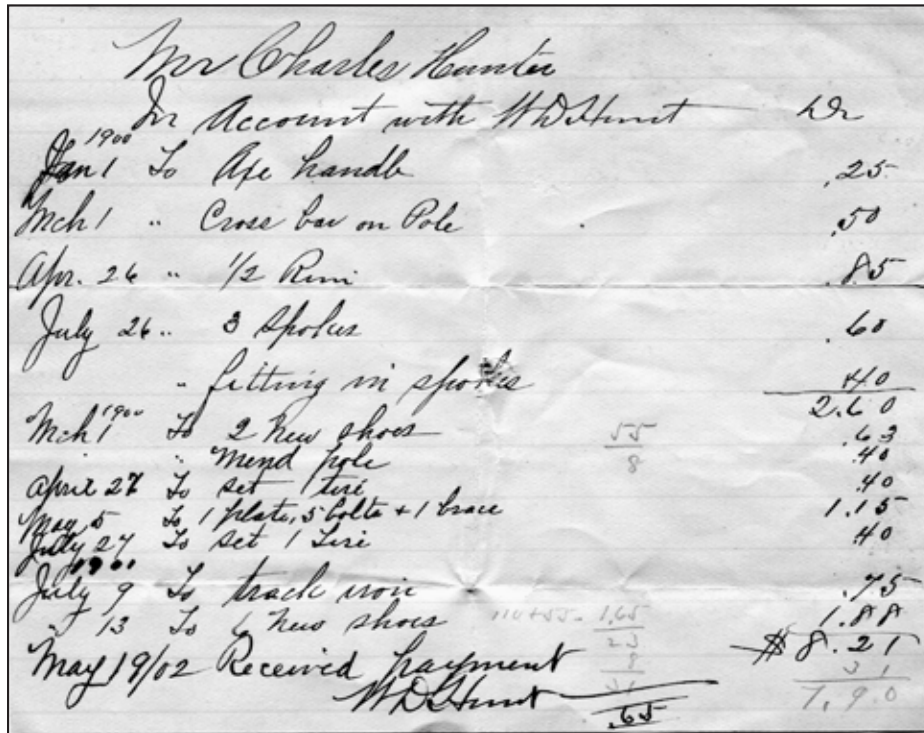 Mr Charles Hunter
In Account with W D Hunt Dr
1900
Jan 1 To Axe handle .25
Mch 1 " Cross bar on Pole .50
Apr. 26 " 1/2 Rim .85
July 26 " 3 Spokes .60
" fitting in spokes .40
2.60
1900
Mch 1 To 2 New shoes .63
" Mend pole .40
April 27 To set tire .40
May 5 To 1 plate, 5 bolts + 1 brace 1.15
July 27 To set 1 Tire .40
July 9 To track iron .75
" 13 To 6 New shoes 1.88
$8.21
May 19/02 Received payment
W D Hunt
31
7.90
55
8
110+55- 1.65
23
8
31
.65